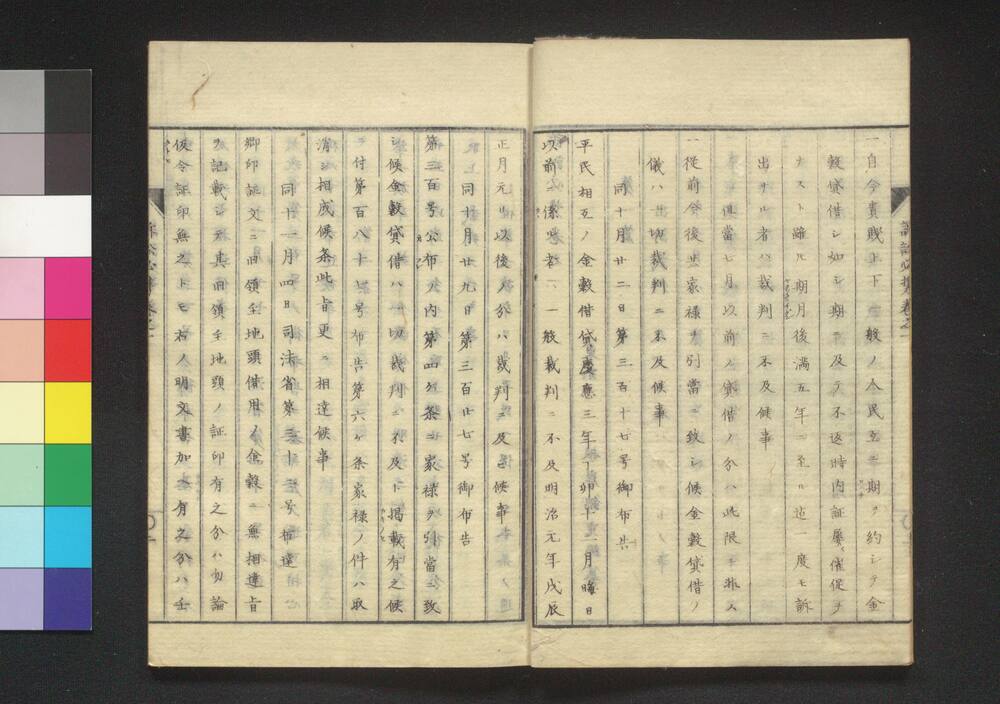 一自今貴賎上下一般ノ人民互ニ期ヲ約シテ金
穀貸借シ如シ期ニ及テ不返時内証屢〻催促ヲ
ナスト雖𪜈期月後満五年ニ至ル迠一度モ訴
出サル者ハ裁判ニ不及候事
但當七月以前ノ貸借ノ分ハ此限ニ非ス
一從前今後共家禄ヲ引當ニ致シ候金穀貸借ノ
儀ハ廿切裁判ニ不及候事
同十月廿二日第三百十七号御布告
平民相互ノ金穀借貸慶應三年丁卯十二月晦日
以前ニ係ル者ハ一般裁判ニ不及明治元年戊辰
正月元日以後ノ分ハ裁判ニ及候事
同十月廿九日第三百廿七号御布告
第三百号公布ノ内第四ケ条ニ家禄ヲ引當ニ致
シ候金穀貸借ハ一切裁判ニ不及ト掲載有之候
ニ付第百八十七号布告第六ケ条家禄ノ件ハ取
消シ相成候条此旨更ニ相達候事
同十一月四日司法省第三十三号相達
郷印証文ニ旧領主地頭借用ノ金穀ニ無相違旨
ヲ記載シ其旧領主地頭ノ証印有之分ハ勿論
仮令証印無之トモ右ノ明文書加ヘ有之分ハ壬